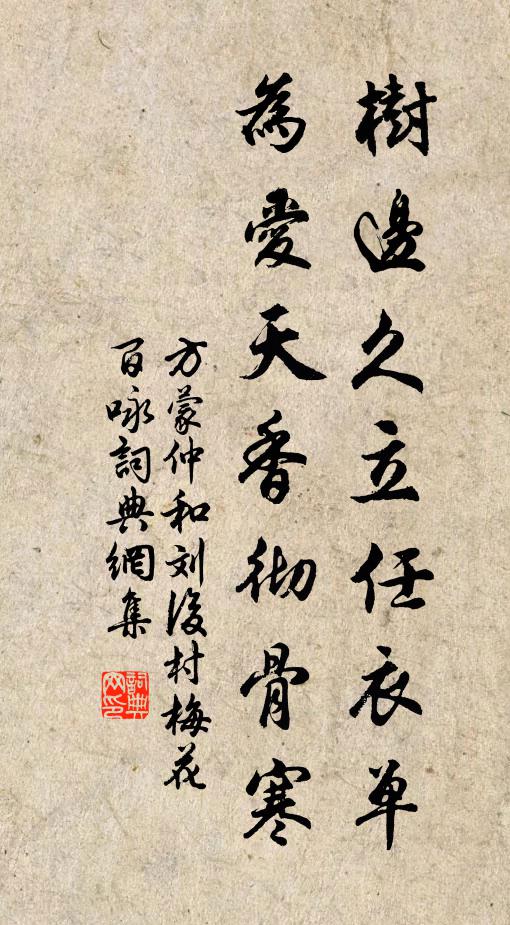 樹邊久立任衣单
為愛天香彻骨寒
方蒙仲和刘後村梅花
百咏詞典網集
詞典网印